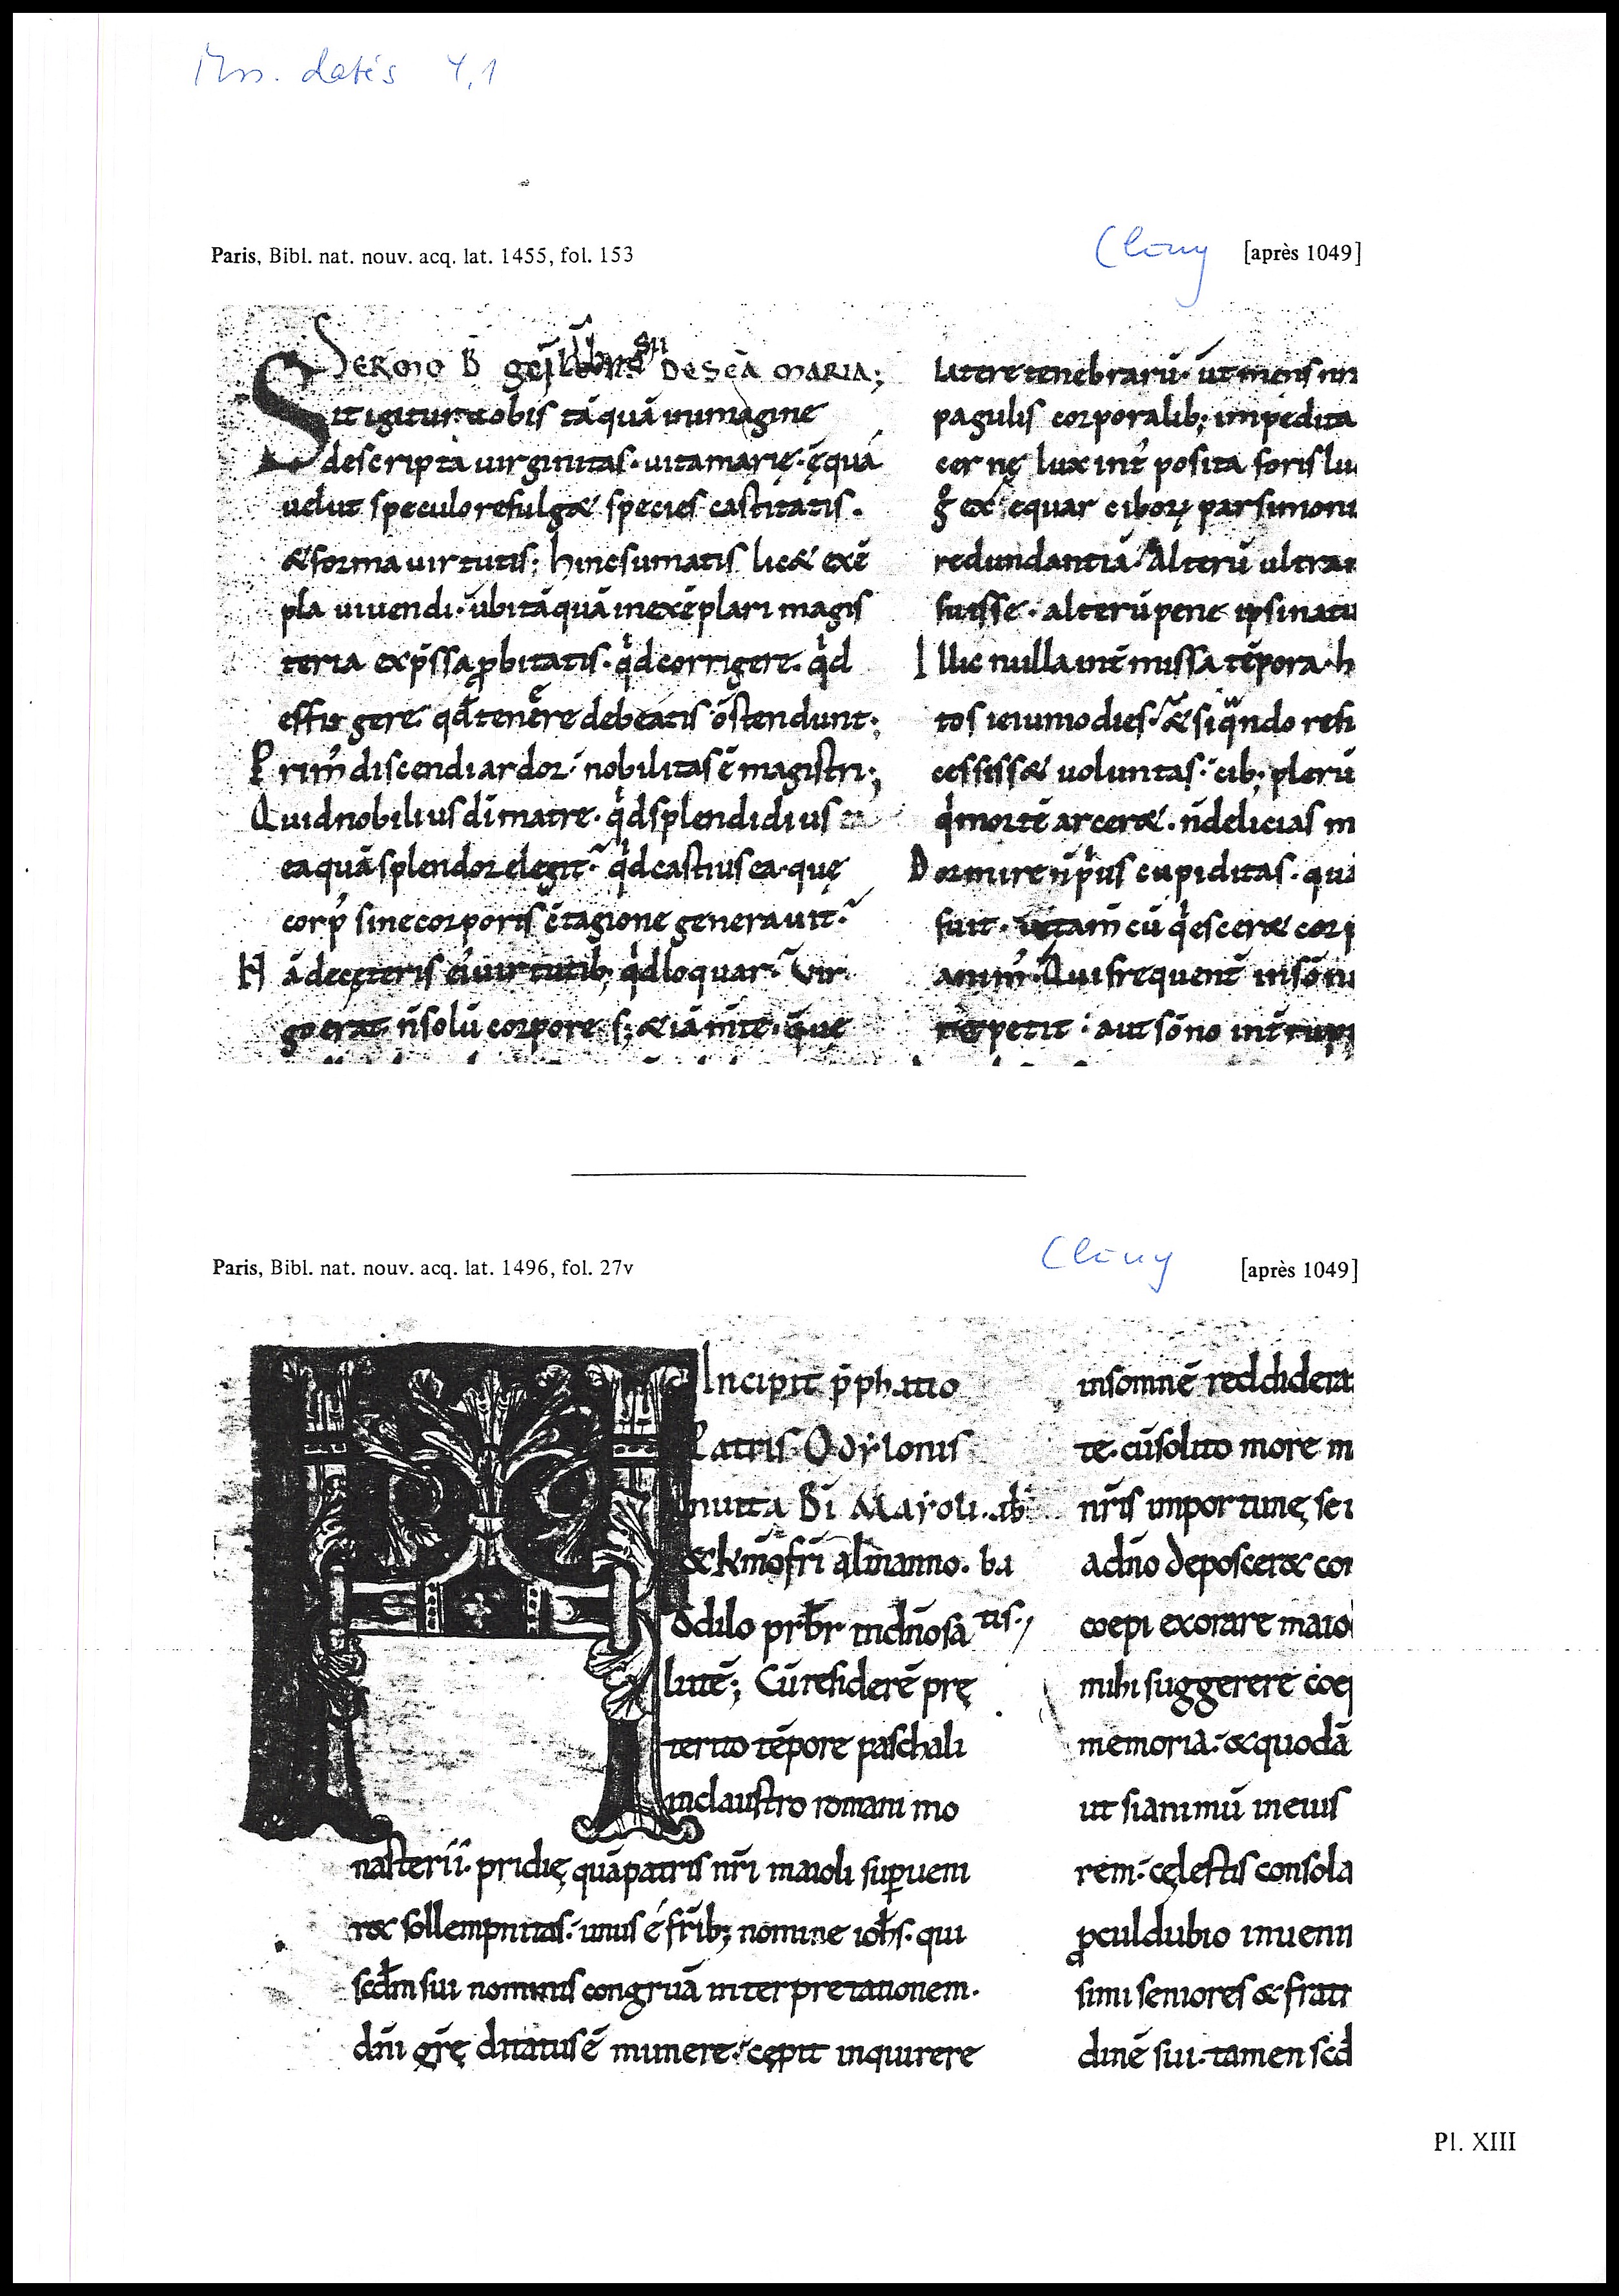 Mss. datés 4,1
Paris, Bibl. nat. nouv. acq. lat. 1455, fol. 153
Cluny
[après 1049]
SERMO B DE SCA MARIA;
Sit igitur uobis tāquā inimagine
descripta uirginitas. uitamarię. ęqua
uelut speculorefulg& species castitatis.
&forma uirtutis; hincsumatis lic& exē
pla uiuendi. ubitāquā inexēplari magis
teria exp̄ssa ꝓbitatis. qd corrigere. qd
effugere. qd tenere debeatis ostendunt;
Prim' discendi ardor. nobilitas ē magistri;
Quidnobilius dī matre. qd splendidius
eaquā splendor elegit. qd castius ea. quę
corp' sinecorporis ctagione generauit.
Nā decęteris ei' uirtutib; qd loquar. Vir
go erat. n̄ solū corpore. s; &iā m̄te. que
latere tenebrarū. ut mens
pagulis corporalib; impedita
cer nę lux int' posita foris lu
equar ciborꝝ parsimoni
redundantiā. Alterū ultra
fuisse. alterū pene ipsi natu
Illic nulla int̄missa tēpora. h
tos ieiunio dies. & siqndo refi
cessiss& uoluntas. cib; plerū
q mortē arcer&. n̄ delicias m
Dormire n̄ p'us cupiditas. qu
fuit. cū qescer& corp
anim'. Qui frequent̄ in sōn
repetit. aut sōno int̄rup
Paris, Bibl. nat. nouv. acq. lat. 1496, fol. 27v
Cluny
[après 1049]
Incipit p̄phatio
Patris Odylonis
inuita Bi Mayoli. ab
&kmō fri almanno. ba
odilo prbr indn̄o sa tis.
lutē; Cū residerē prę
terito tēpore paschali
inclaustro romani mo
nasterii. pridię quāpatris nr̄i maioli sup̱ueni
r& sollempnitas. unus é fr̄ib; nomine ioh̄s. qui
scdm sui nominis congruā interpretationem.
dn̄i gr̄ę ditatus ē munere. cępit inquirere
insomnē reddidera
te. cū solito more m
nr̄is importunę se
ad n̄o deposcer& co
coepi exorare maio
mihi suggerere coe
memoria. & quodā
ut si animū ineius
rem. cęlestis consola
ꝓculdubio inueni
simi seniores & fratr
dinē sui. tamen scd
Pl. XIII